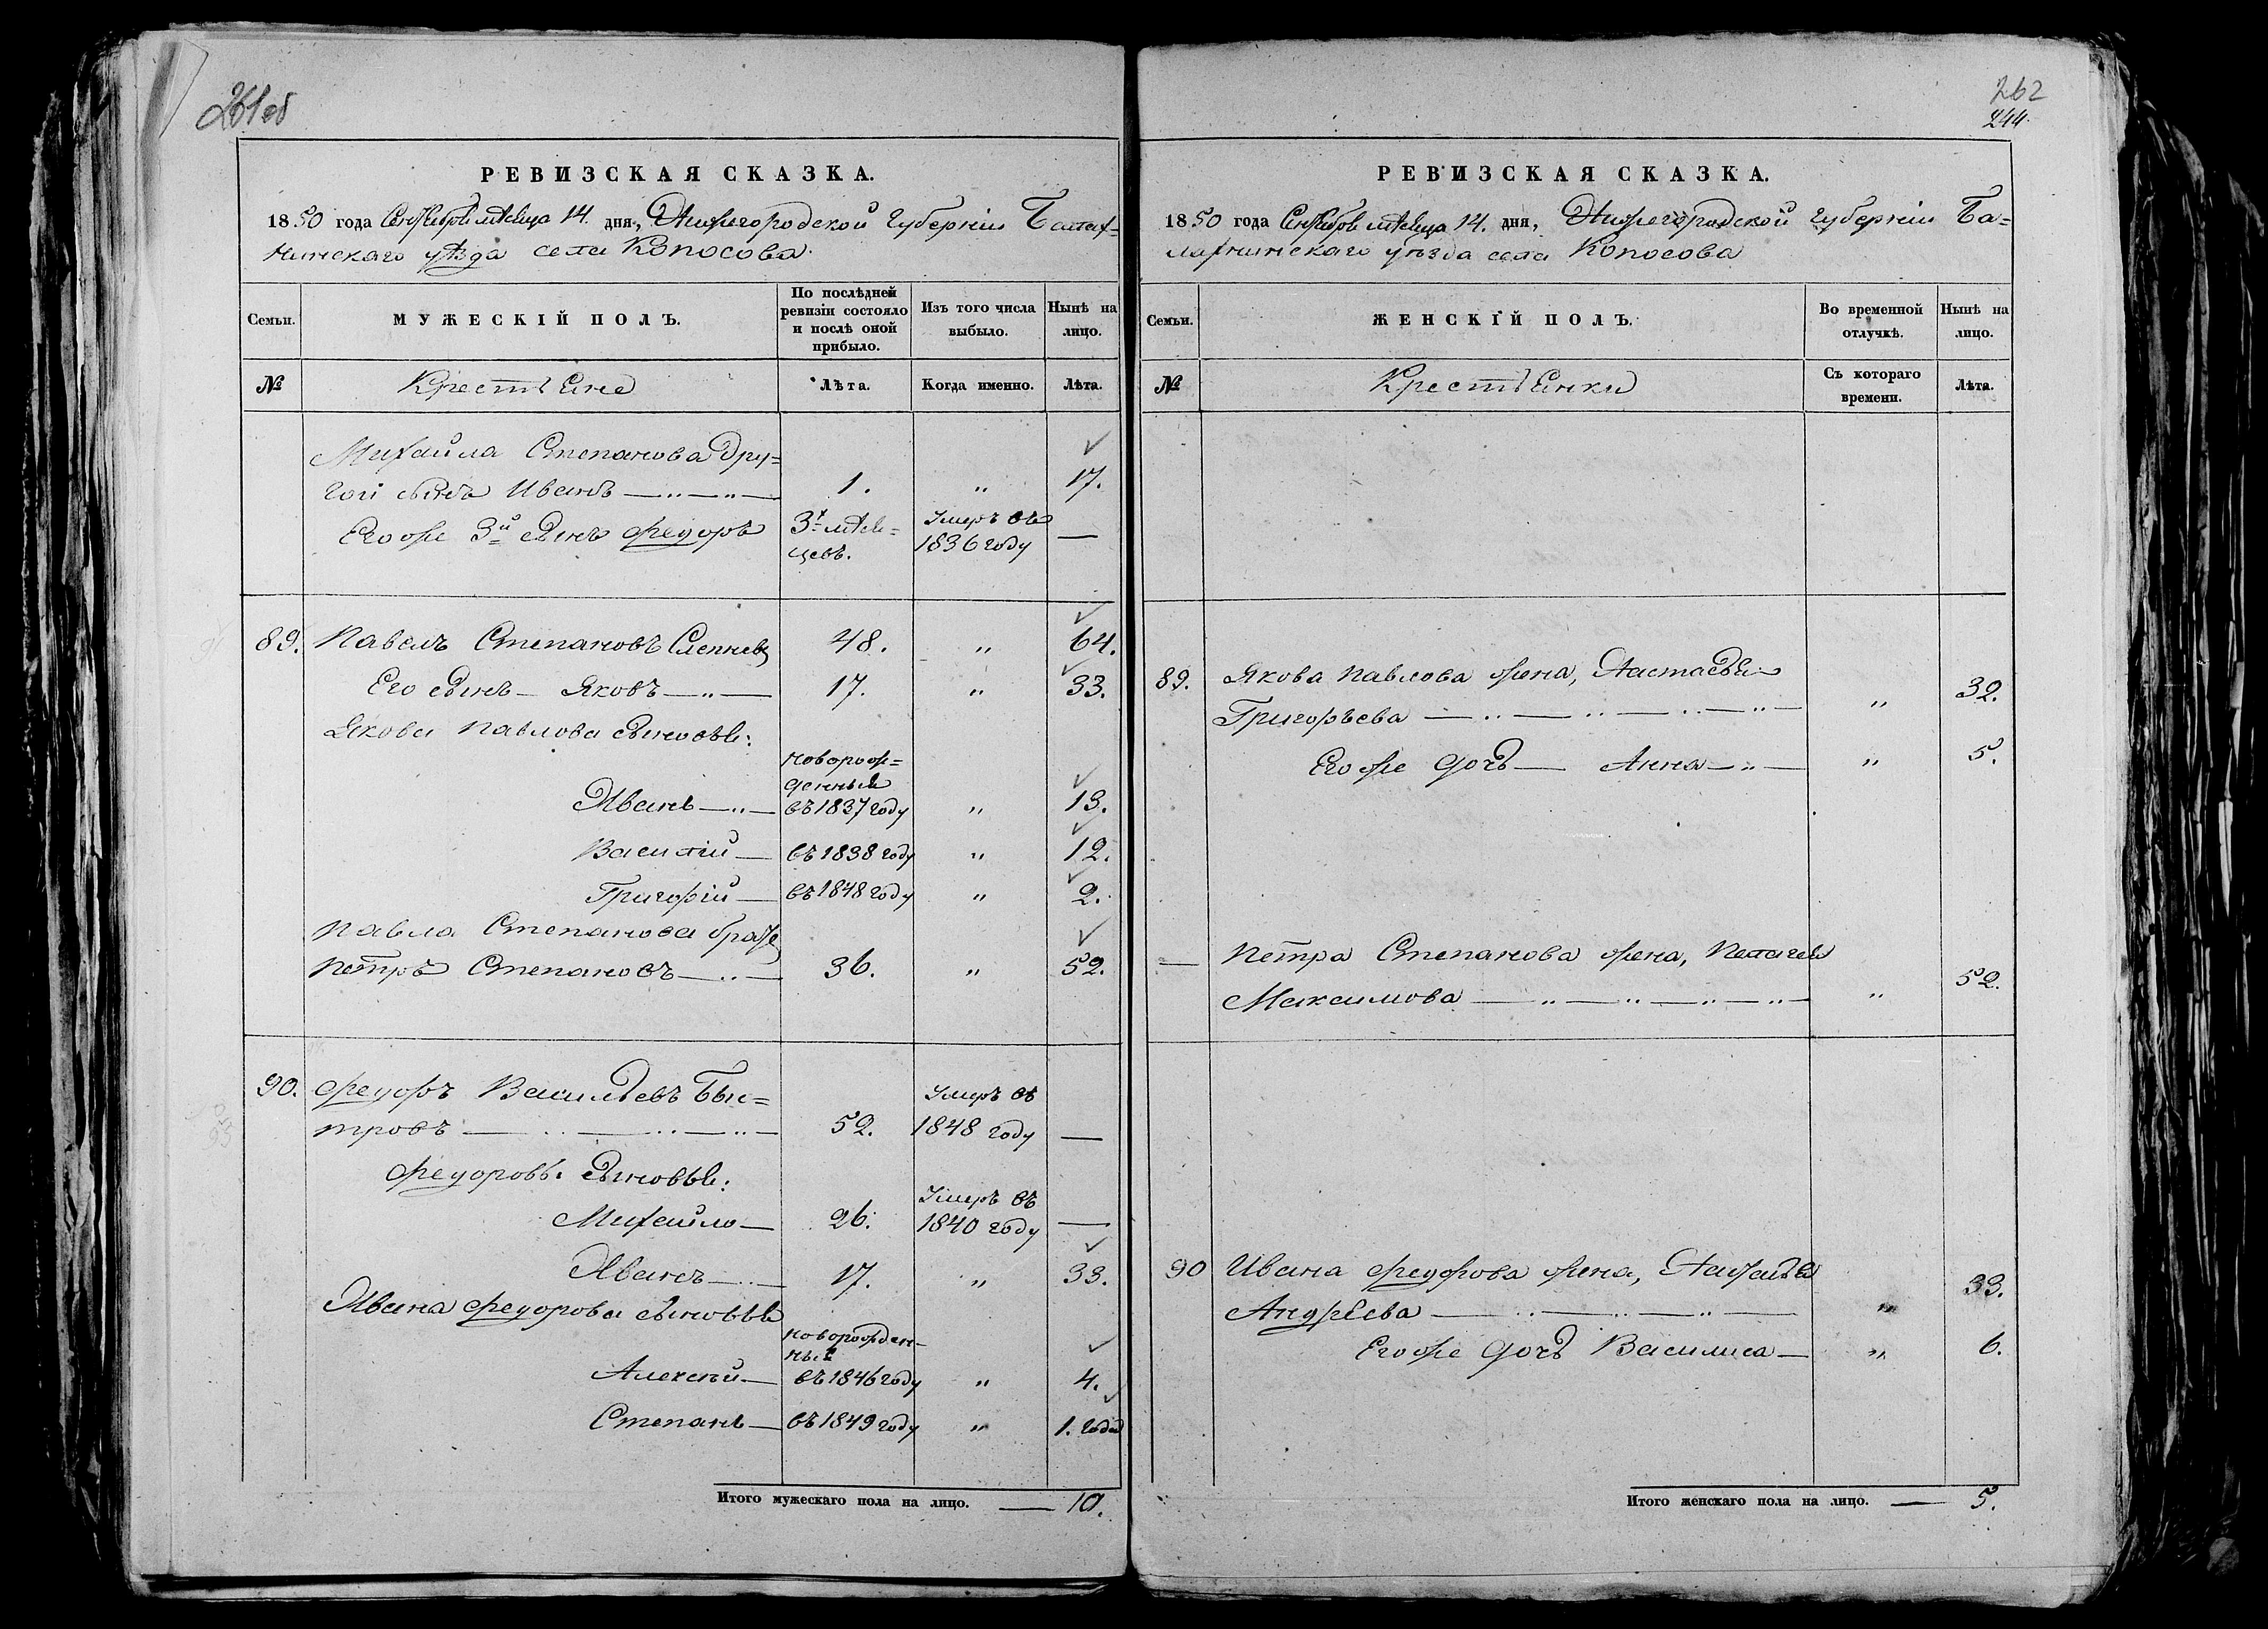 261об
РЕВИЗСКАЯ СКАЗКА.
1850 года Сентября мѣсяца 14. дня, Нижегородской Губерніи Балах=
нинскаго уѣзда села Копосова.
Семьи.
МУЖЕСКІЙ ПОЛЪ.
По послѣдней ревизіи состояло и послѣ оной прибыло.
Изъ того числа выбыло.
Нынѣ на лицо.
№
Крестьяне
Лѣта.
Когда именно.
Лѣта.
Михайла Степанова дру=
гой сынъ Иванъ 1. „ 17.
Его же 3й сынъ Федоръ 3х мѣся=
цевъ. Умеръ въ
1836 году —
89. Павелъ Степановъ 48. „ 64.
Его сынъ — Яковъ 17. „ 33.
Якова Павлова сыновья:
новорож=
денный
Иванъ въ 1837 году „ 13.
Василій — въ 1838 году „ 12.
Григорій — въ 1848 году „ 2.
Павла Степанова братъ
Петръ Степановъ 36. „ 52.
90. Федоръ Васильевъ Бы=
тровъ 52. Умеръ въ
1848 году —
Федоровы сыновья:
Михайло — 26. Умеръ въ
1840 году —
Иванъ 17. „ 33.
Ивана Федорова сыновья
новорожден=
ный
Алексѣй — въ 1846 году „ 4.
Степанъ — въ 1849 году „ 1. года
Итого мужескаго пола на лицо. — 10.
262
244.
РЕВИЗСКАЯ СКАЗКА.
1850 года Сентября мѣсяца 14. дня, Нижегородской Губерніи Ба=
лахнинскаго уѣзда села Копосова
Семьи.
ЖЕНСКІЙ ПОЛЪ.
Во временной отлучкѣ.
Нынѣ на лицо.
№
Крестьянки
Съ котораго времени.
Лѣта.
89. Якова Павлова жена, Настасья
Григорьева „ 32.
Его же дочь — Анна „ 5.
— Петра Степанова жена, Пелагея
Максимова „ 52.
90 Ивана Федорова жена,
Андреева „ 33.
Его же дочь Василиса — „ 6.
Итого женскаго пола на лицо. — 5.